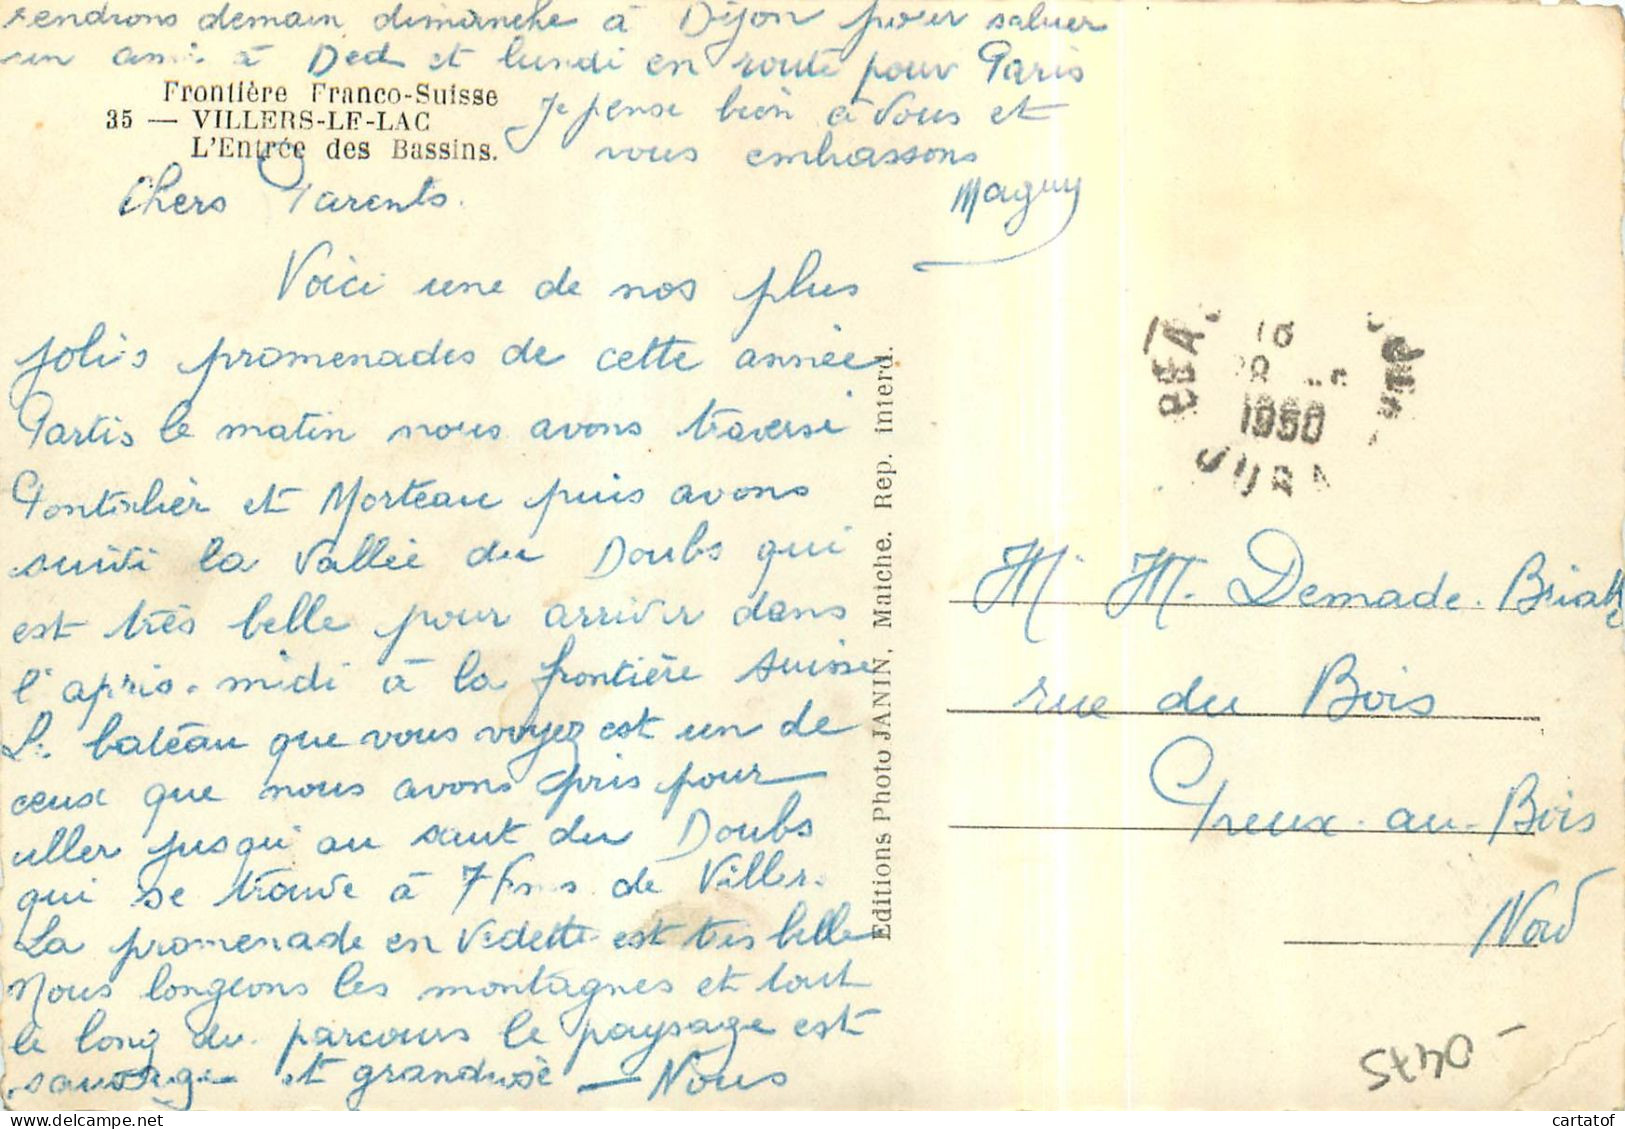 Frontière Franco-Suisse
35 — VILLERS-LE-LAC
L'Entrée des Bassins.
Chers Parents.
Voici une de nos plus
jolies promenades de cette année
Partis le matin nous avons traversé
Pontarlier et Morteau puis avons
suivi la vallée du Doubs qui
est très belle pour arriver dans
l'après-midi à la frontière suisse
Le bateau que vous voyez est un de
ceux que nous avons pris pour
aller jusqu'au saut du Doubs
qui se trouve à 7 Kms de Villers.
La promenade en vedette est très belle
Nous longeons les montagnes et tout
le long du parcours le paysage est
sauvage et grandiose — Nous
rendrons demain dimanche à Dijon pour saluer
un ami à Ded et lundi en route pour Paris
Je pense bien à vous et
vous embrassons
Maguy
Editions Photo JANIN, Maiche. Rep. interd.
1950
JURA
M. M. Demade-
rue du Bois
Preux-au-Bois
Nord
cartatof